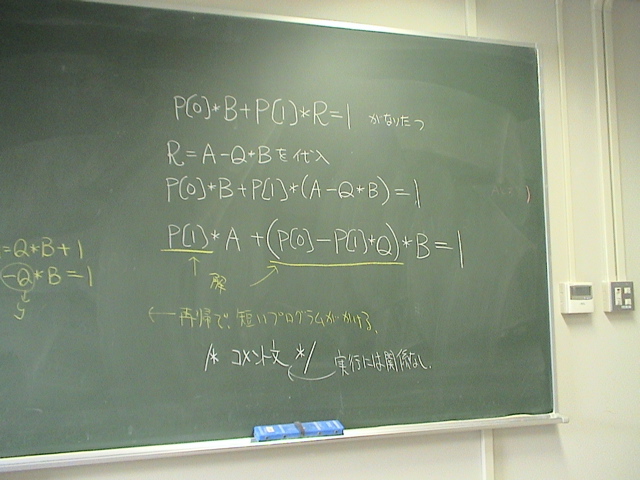 P[0]*B+P[1]*R=1 がなりたつ
R=A-Q*Bを代入
P[0]*B+P[1]*(A-Q*B)=1
P[1]*A+(P[0]-P[1]*Q)*B=1
=Q*B+1
解
-Q*B=1
y
←再帰で、短いプログラムがかける。
/* コメント文 */ 実行には関係なし.